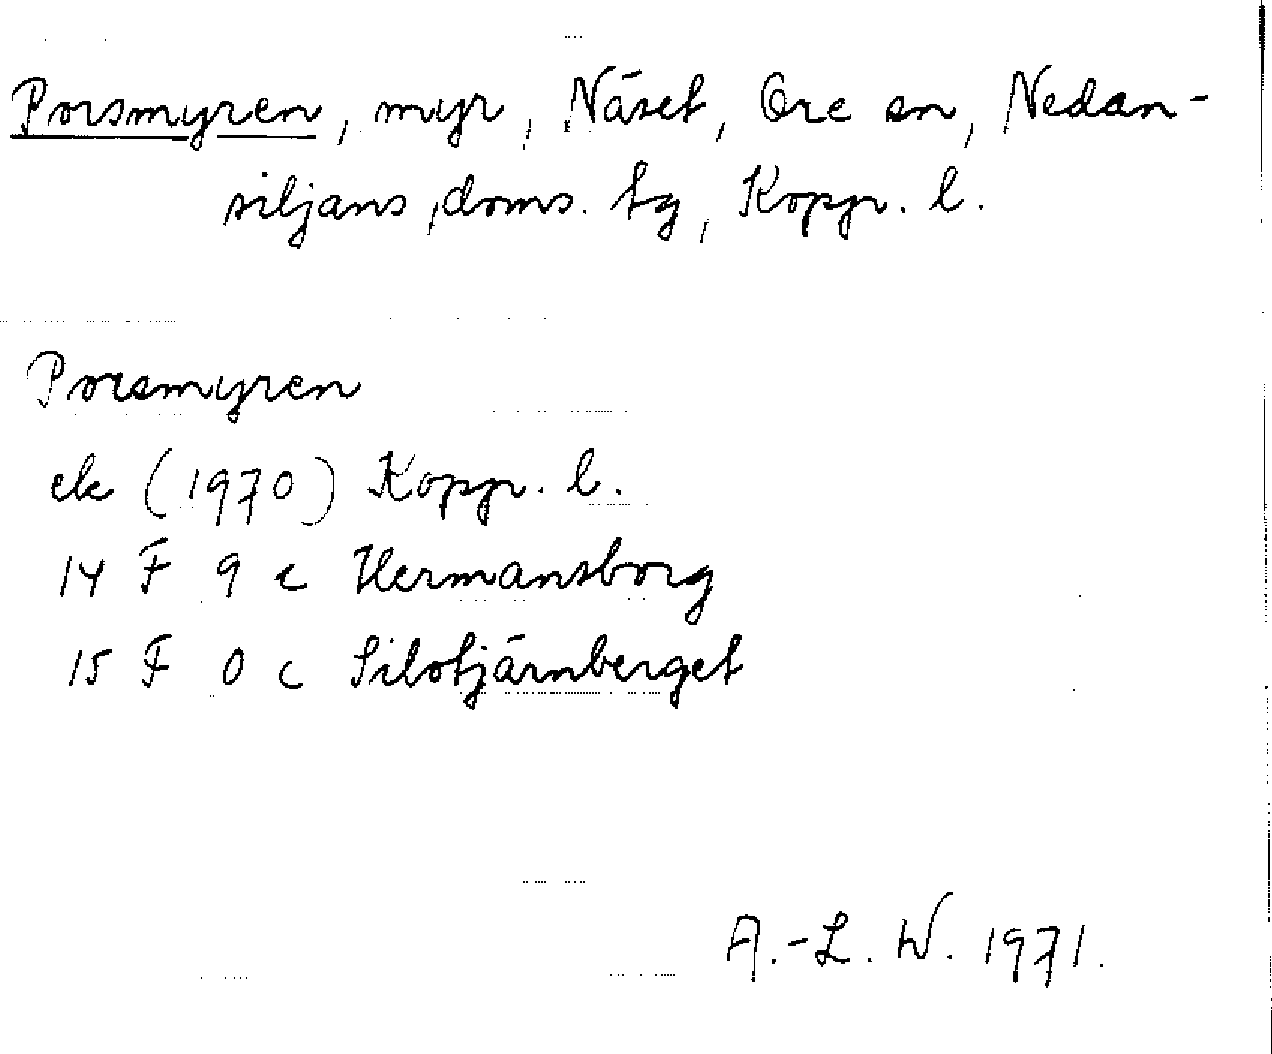 Porsmyren, myr, Näset, Ore sn, Nedan-
siljans doms. tg, Koppr. l.
Porsmyren
ek (1970) Koppr. l.
14 F 9 c Hermansborg
15 F 0 c Silotjärnberget
A.-L. W. 1971.